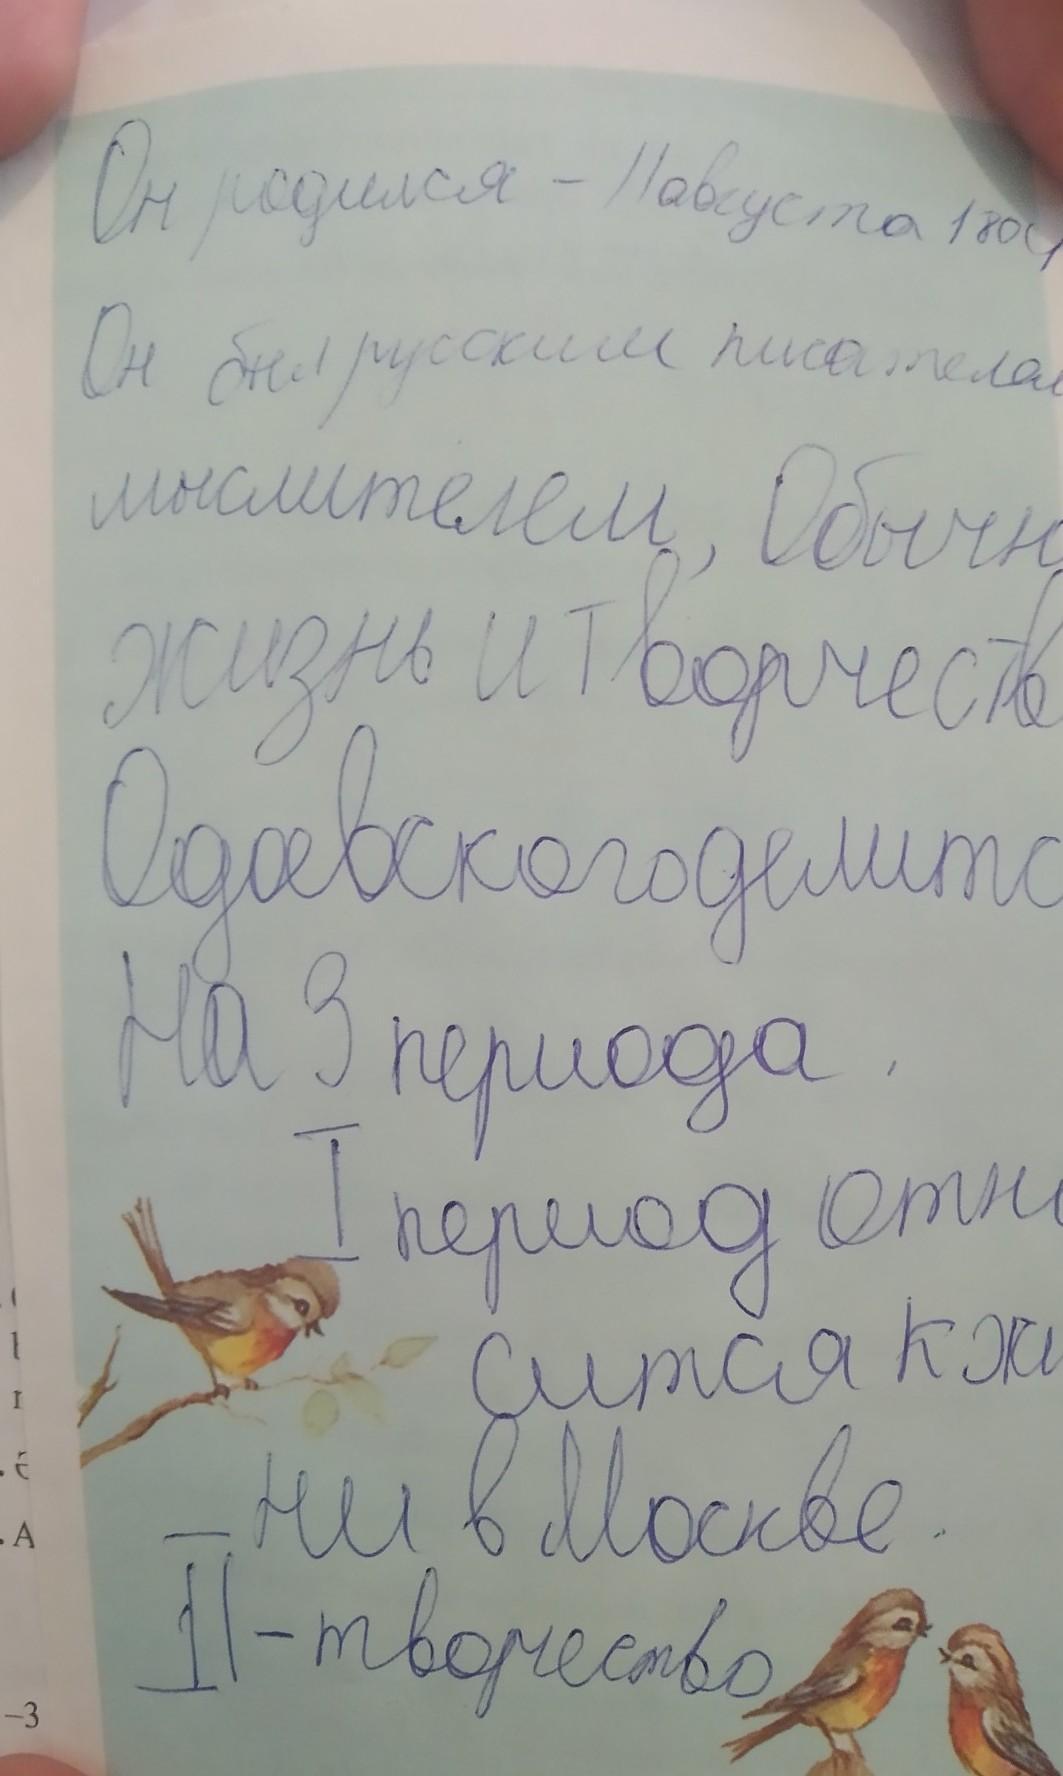 Он родился – 11 августа 180
Он был русским писателем
мыслителем, Обычн
жизнь и творчеств
Одоевского делитс
На 3 периода.
I период отно
сится к жи
ни в Москве.
II – творчество
–3